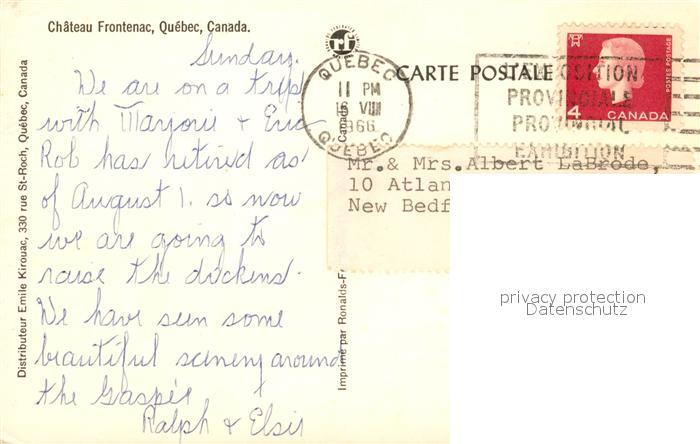 Château Frontenac, Québec, Canada.
Sunday.
We are on a trip
with Marjorie & Eric
Rob has retired as
of August 1. so now
we are going to
raise the dickens.
We have seen some
beautiful scenery around
the Gaspé
Ralph & Elsie
Distributeur Emile Kirouac, 330 rue St-Roch, Québec, Canada
Imprimé par Ronalds-F
Canada
CARTE POSTALE
QUÉBEC
11 PM
16 VIII
1966
QUÉBEC
EXPOSITION
PROVINCIALE
PROVINCIAL
EXHIBITION
POSTES POSTAGE
4 CANADA
Mr.& Mrs.Albert LaBrode,
10 Atlan
New Bedf
privacy protection
Datenschutz